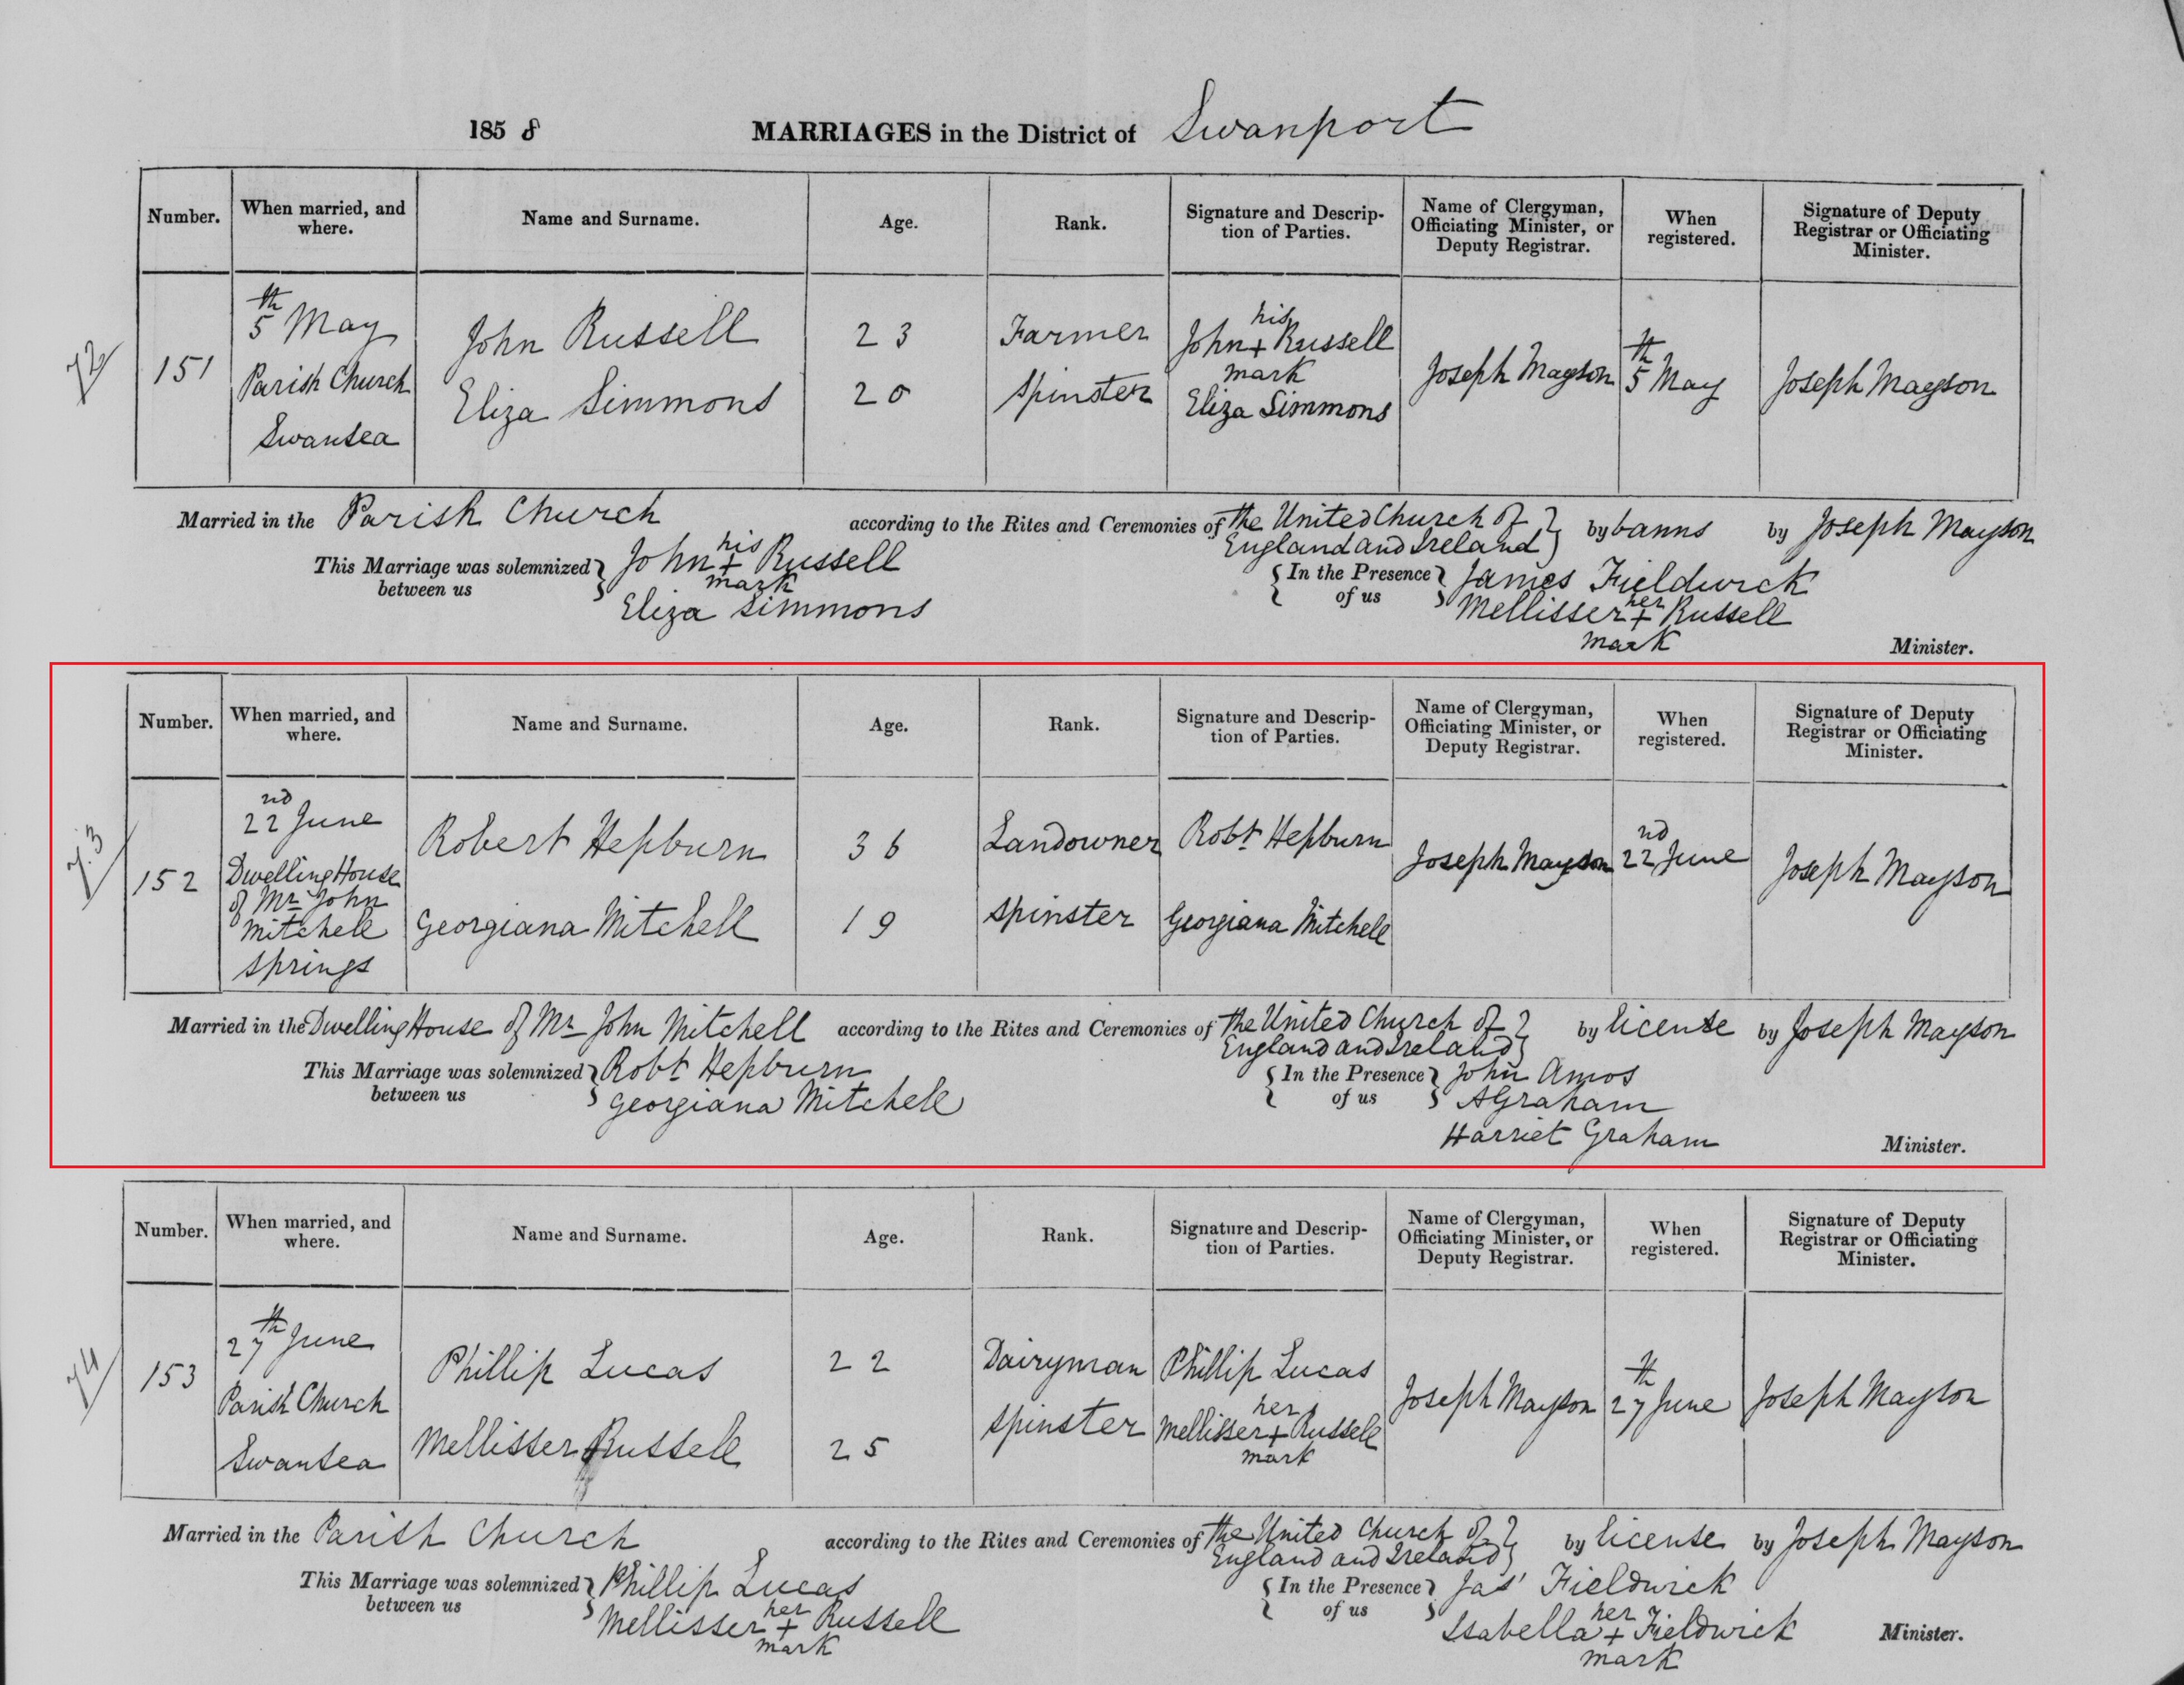 1858 MARRIAGES in the District of Swanport
Number. When married, and where. Name and Surname. Age. Rank. Signature and Description of Parties. Name of Clergyman, Officiating Minister, or Deputy Registrar. When registered. Signature of Deputy Registrar or Officiating Minister.
72
151
5th May
Parish Church
Swansea
John Russell
Eliza Simmons
23
20
Farmer
Spinster
his
John + Russell
mark
Eliza Simmons
Joseph Mayson
5th May
Joseph Mayson
Married in the Parish Church according to the Rites and Ceremonies of the United Church of England and Ireland by banns by Joseph Mayson
This Marriage was solemnized between us
his
John + Russell
mark
Eliza Simmons
In the Presence of us
James Fieldwick
her
Mellisser + Russell
mark
Minister.
Number. When married, and where. Name and Surname. Age. Rank. Signature and Description of Parties. Name of Clergyman, Officiating Minister, or Deputy Registrar. When registered. Signature of Deputy Registrar or Officiating Minister.
73
152
22nd June
Dwelling House
of Mr John
Mitchell
Springs
Robert Hepburn
Georgiana Mitchell
36
19
Landowner
Spinster
Robt Hepburn
Georgiana Mitchell
Joseph Mayson
22nd June
Joseph Mayson
Married in the Dwelling House of Mr John Mitchell according to the Rites and Ceremonies of the United Church of England and Ireland by license by Joseph Mayson
This Marriage was solemnized between us
Robt Hepburn
Georgiana Mitchell
In the Presence of us
John Amos
A Graham
Harriet Graham
Minister.
Number. When married, and where. Name and Surname. Age. Rank. Signature and Description of Parties. Name of Clergyman, Officiating Minister, or Deputy Registrar. When registered. Signature of Deputy Registrar or Officiating Minister.
74
153
27th June
Parish Church
Swansea
Phillip Lucas
Mellisser Russell
22
25
Dairyman
Spinster
Phillip Lucas
her
Mellisser + Russell
mark
Joseph Mayson
27th June
Joseph Mayson
Married in the Parish Church according to the Rites and Ceremonies of the United Church of England and Ireland by license by Joseph Mayson
This Marriage was solemnized between us
Phillip Lucas
her
Mellisser + Russell
mark
In the Presence of us
Jas' Fieldwick
her
Isabella + Fieldwick
mark
Minister.